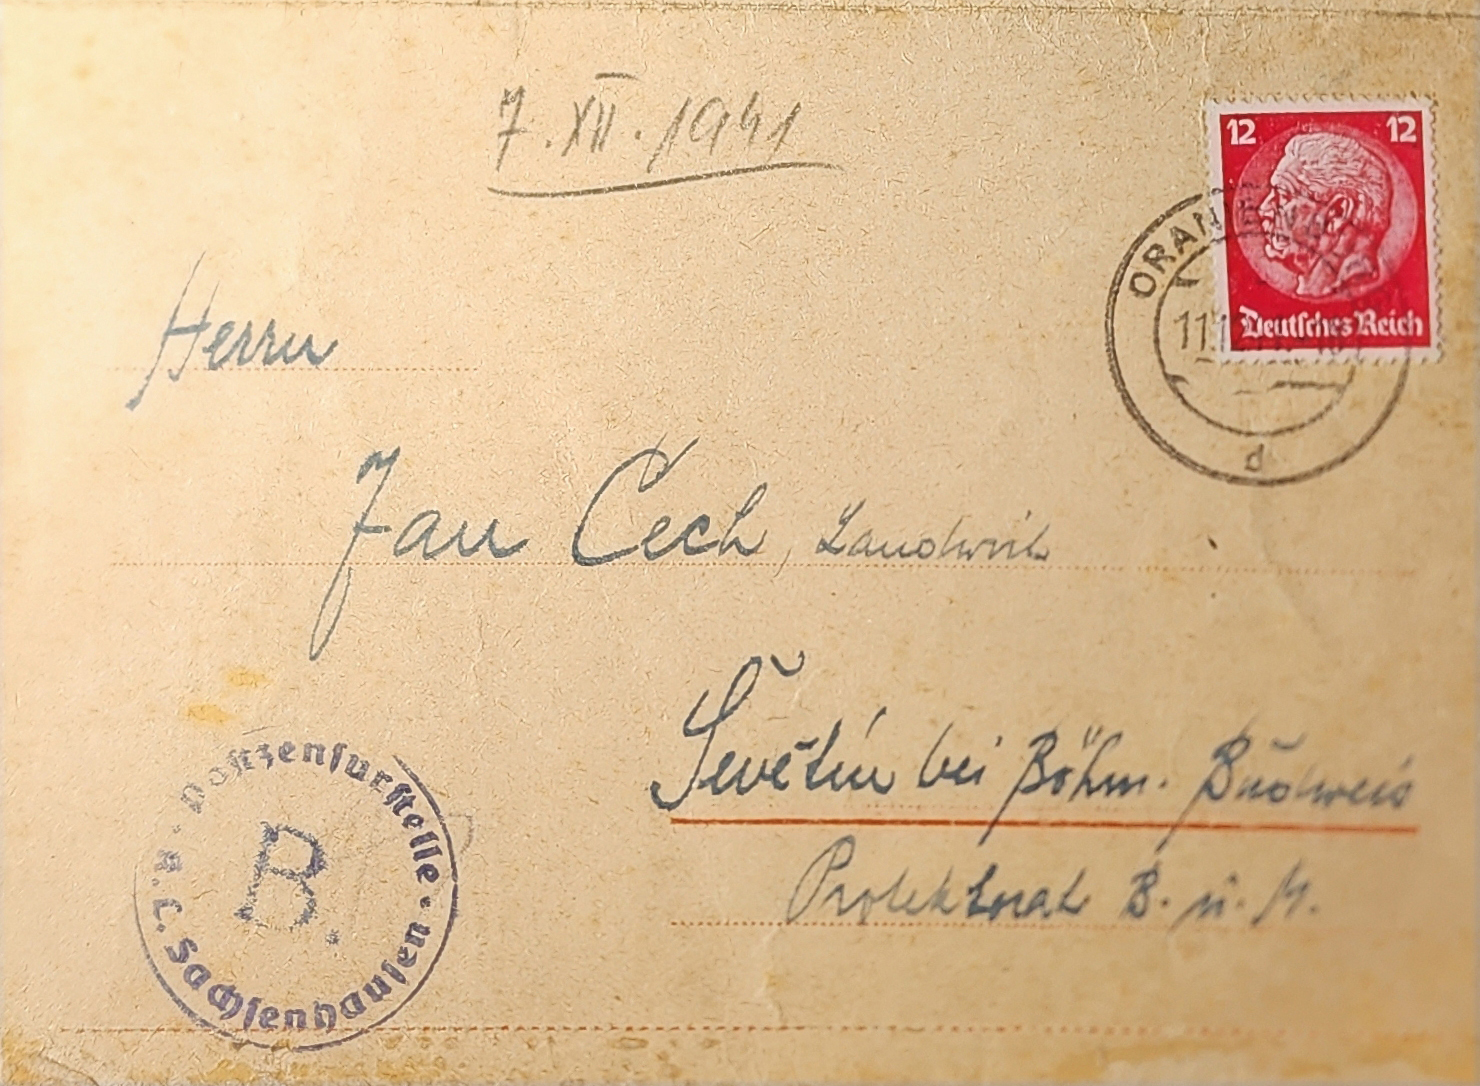 7. XII. 1941
12 12
Deutsches Reich
ORANIEN
11.12
d
Herrn
Jan Cech, Landwirt
Ševětín bei Böhm. Budweis
Protektorat B. u. M.
Postzensurstelle
B.
K.L. Sachsenhausen